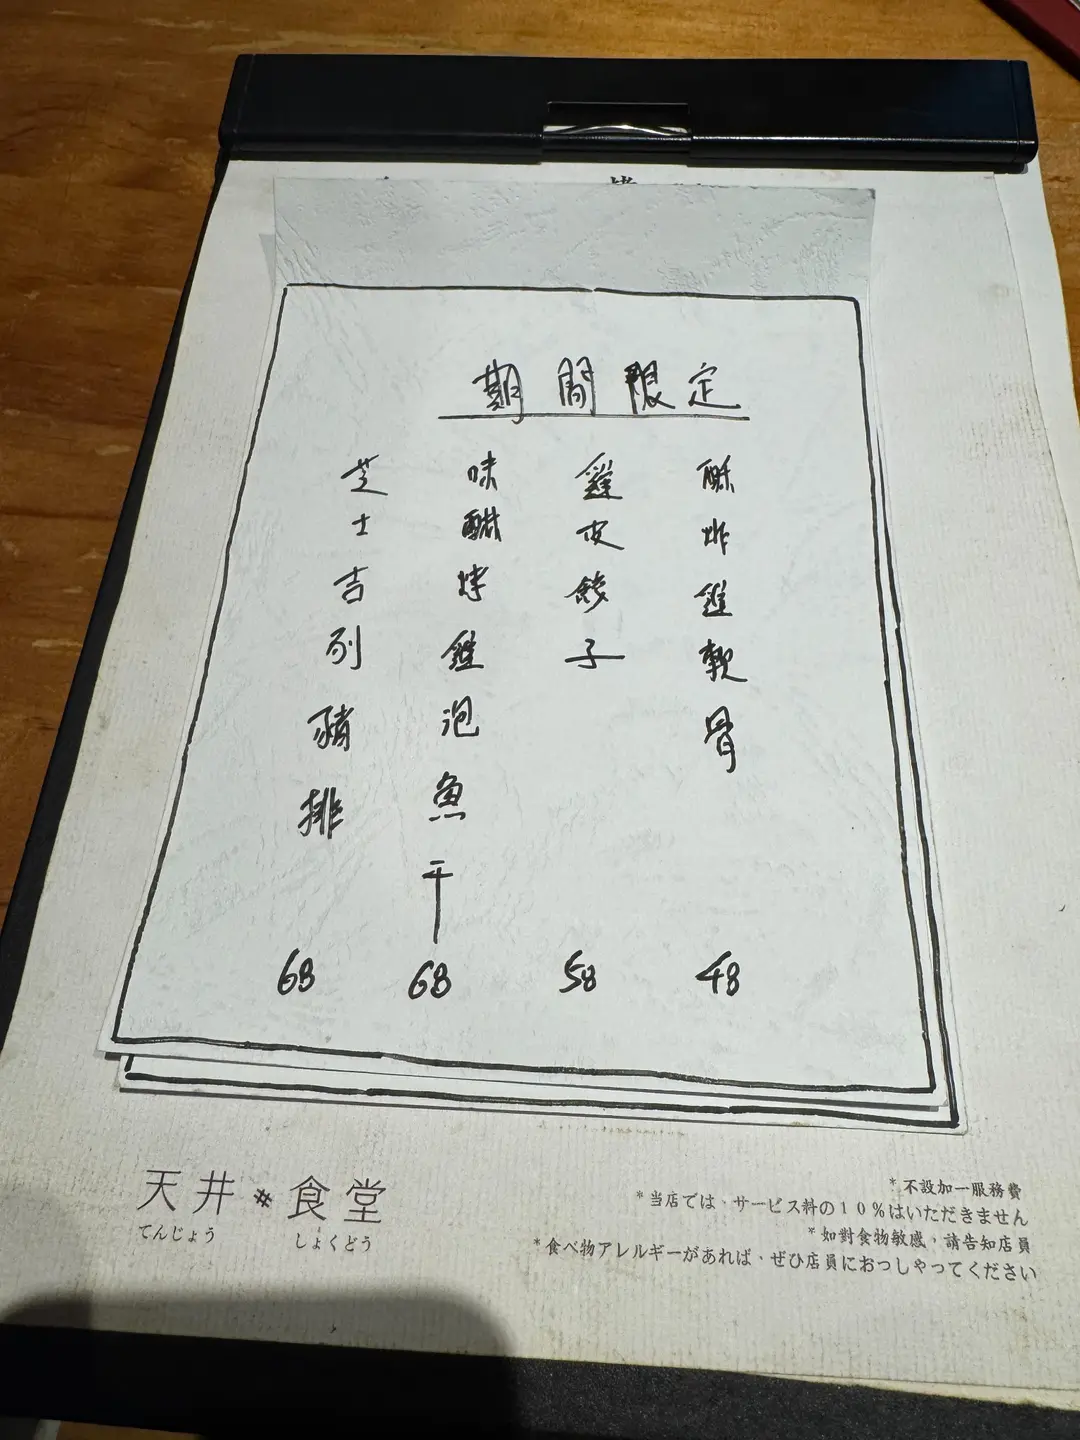 期間限定
酥炸雞軟骨
48
雞皮餃子
58
味醂烤雞泡魚干
68
芝士吉列豬排
68
天井#食堂
てんじょう しょくどう
*不設加一服務費
*当店では、サービス料の10%はいただきません
*如對食物敏感，請告知店員
*食べ物アレルギーがあれば、ぜひ店員におっしゃってください